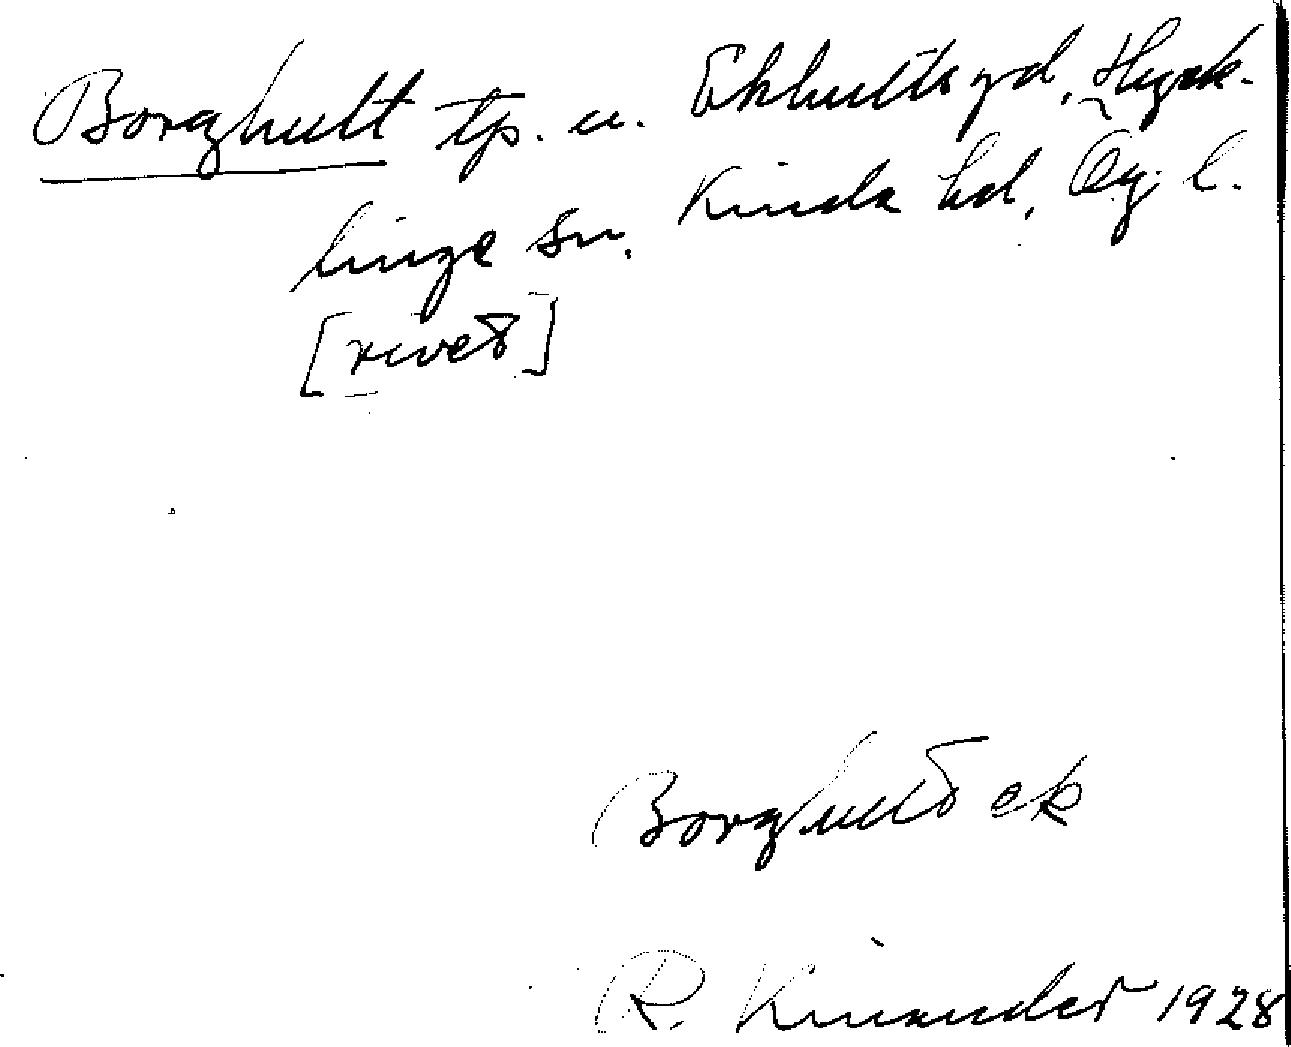 Borghult tp. u. Ekhults gd, Hyck-
linge sn. Kinda hd, Ög. l.
[rivet]
Borghult ek
R. Kinander 1928